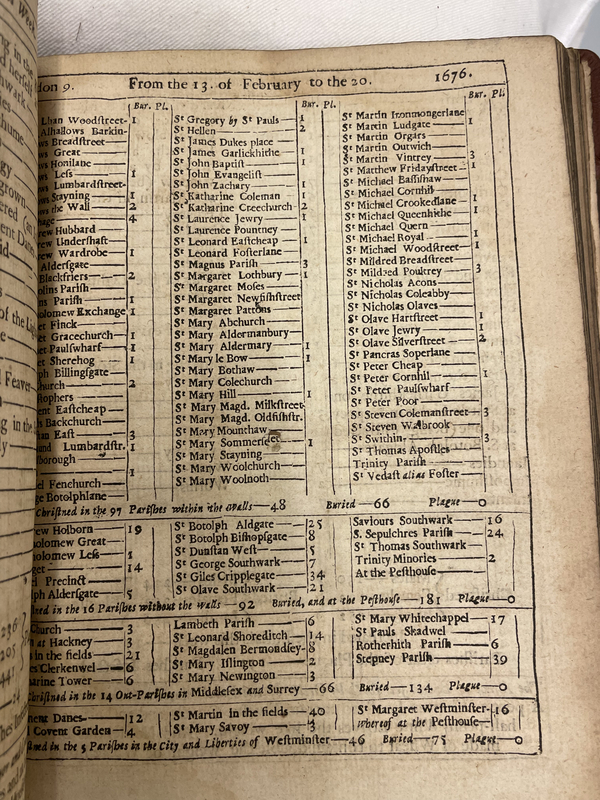 From the 13. of February to the 20. 1676.
Bur. Pl.
lban Woodſtreet- 1
Alhallows Barkin-
ws Breadſtreet
ws Great
ws Honilane
ws Leſs 1
ws Lumbardſtreet-
ws Stayning 1
ws the Wall 2
4
ew Hubbard
ew Underſhaft
ew Wardrobe 1
Alderſgate
Blackfriers 2
olins Pariſh
ns Pariſh 1
olomew Exchange 1
et Finck
et Gracechurch 1
et Paulſwharf 1
et Sherehog 1
ph Billingſgate
Church 2
ſtophers
ent Eaſtcheap
s Backchurch
an Eaſt 3
und Lumbardſtr. 1
borough
1
el Fenchurch
ge Botolphlane
Bur. Pl.
Sᵗ Gregory by Sᵗ Pauls 1
Sᵗ Hellen 2
Sᵗ James Dukes place
Sᵗ James Garlickhithe 1
Sᵗ John Baptiſt 1
Sᵗ John Evangeliſt
Sᵗ John Zachary 1
Sᵗ Katharine Coleman 1
Sᵗ Katharine Creechurch 2
Sᵗ Laurence Jewry 1
Sᵗ Laurence Pountney
Sᵗ Leonard Eaſtcheap 1
Sᵗ Leonard Foſterlane
Sᵗ Magnus Pariſh 3
Sᵗ Margaret Lothbury 1
Sᵗ Margaret Moſes
Sᵗ Margaret Newfiſhſtreet
Sᵗ Margaret Pattons
Sᵗ Mary Abchurch
Sᵗ Mary Aldermanbury
Sᵗ Mary Aldermary 1
Sᵗ Mary le Bow 1
Sᵗ Mary Bothaw
Sᵗ Mary Colechurch
Sᵗ Mary Hill 1
Sᵗ Mary Magd. Milkſtreet
Sᵗ Mary Magd. Oldfiſhſtr.
Sᵗ Mary Mounthaw
Sᵗ Mary Sommerſet 1
Sᵗ Mary Stayning
Sᵗ Mary Woolchurch
Sᵗ Mary Woolnoth
Bur. Pl.
Sᵗ Martin Ironmongerlane
Sᵗ Martin Ludgate 1
Sᵗ Martin Orgars
Sᵗ Martin Outwich
Sᵗ Martin Vintrey 3
Sᵗ Matthew Fridayſtreet 1
Sᵗ Michael Baſſiſhaw
Sᵗ Michael Cornhil
Sᵗ Michael Crookedlane 1
Sᵗ Michael Queenhithe 1
Sᵗ Michael Quern
Sᵗ Michael Royal 1
Sᵗ Michael Woodſtreet 1
Sᵗ Mildred Breadſtreet
Sᵗ Mildred Poultrey 3
Sᵗ Nicholas Acons
Sᵗ Nicholas Coleabby
Sᵗ Nicholas Olaves
Sᵗ Olave Hartſtreet 1
Sᵗ Olave Jewry 1
Sᵗ Olave Silverſtreet 2
Sᵗ Pancras Soperlane
Sᵗ Peter Cheap
Sᵗ Peter Cornhil 1
Sᵗ Peter Paulſwharf
Sᵗ Peter Poor
Sᵗ Steven Colemanſtreet 3
Sᵗ Steven Walbrook
Sᵗ Swithin 3
Sᵗ Thomas Apoſtles
Trinity Pariſh
Sᵗ Vedaſt alias Foſter
Chriſtned in the 97 Pariſhes within the walls—48 Buried—66 Plague—0
ew Holborn 19
olomew Great
olomew Leſs 1
get 14
l Precinct
ph Alderſgate 5
Sᵗ Botolph Aldgate 25
Sᵗ Botolph Biſhopſgate 8
Sᵗ Dunſtan Weſt 5
Sᵗ George Southwark 7
Sᵗ Giles Cripplegate 34
Sᵗ Olave Southwark 21
Saviours Southwark 16
S. Sepulchres Pariſh 24
Sᵗ Thomas Southwark
Trinity Minories 2
At the Peſthouſe
ned in the 16 Pariſhes without the Walls—92 Buried, and at the Peſthouſe—181 Plague—0
Church 3
at Hackney 3
in the fields 21
es Clerkenwel 6
harine Tower 6
Lambeth Pariſh 6
Sᵗ Leonard Shoreditch 14
Sᵗ Magdalen Bermondſey 8
Sᵗ Mary Iſlington 2
Sᵗ Mary Newington 3
Sᵗ Mary Whitechappel 17
Sᵗ Pauls Skadwel
Rotherhith Pariſh 6
Stepney Pariſh 39
Chriſtned in the 14 Out-Pariſhes in Middleſex and Surrey—66 Buried—134 Plague—0
ment Danes 12
Covent Garden 4
Sᵗ Martin in the fields 40
Sᵗ Mary Savoy 3
Sᵗ Margaret Weſtminſter 16
Whereof at the Peſthouſe
ned in the 5 Pariſhes in the City and Liberties of Weſtminſter—46 Buried—75 Plague—0